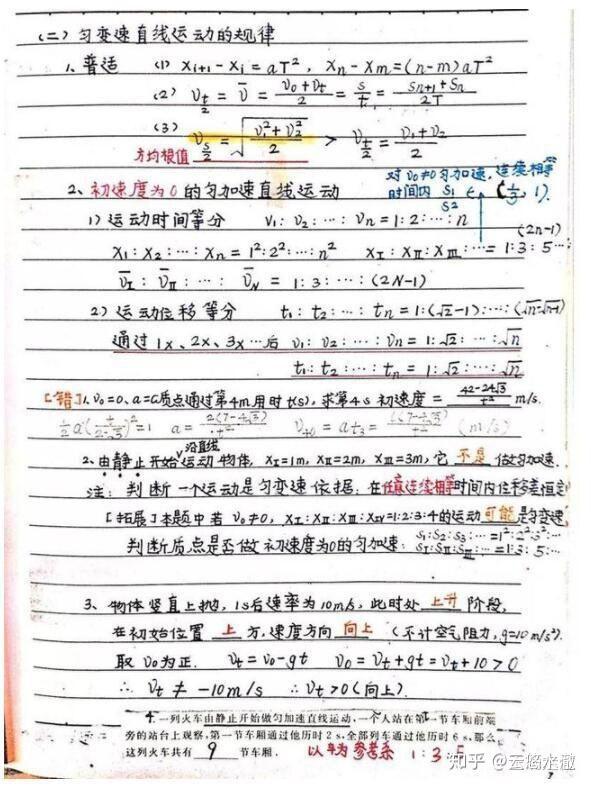 (二) 匀变速直线运动的规律
1、普适 (1) Xi+1 - Xi = aT², Xn - Xm = (n-m)aT²
(2) Vt/2 = V̄ = (V0+Vt)/2 = S/t = (Sn+1+Sn)/2T
(3) Vs/2 = √((V1²+V2²)/2) > Vt/2 = (V1+V2)/2
方均根值
对V0≠0匀加速,连续相等
时间内 S1/S2 ∈ (1/3, 1).
2、初速度为0的匀加速直线运动
1) 运动时间等分 V1: V2: … Vn = 1:2:…:n
(2n-1)
X1: X2: …: Xn = 1²:2²:…:n² XⅠ: XⅡ: XⅢ: … = 1:3:5…:
V̄Ⅰ: V̄Ⅱ: …: V̄N = 1:3:…:(2N-1)
2) 运动位移等分 t1: t2: …: tn = 1:(√2-1):…:(√n-√n-1)
通过1X、2X、3X…后 V1: V2: …: Vn = 1:√2:…:√n
t1: t2: …: tn = 1:√2:…:√n
[错]1. V0=0、a=C质点通过第4m用时t(s), 求第4s初速度 = (42-24√3)/t² m/s.
½a(t/(2-√3))²=1 a = 2(7-4√3)/t² = at3 = (m/s)
沿直线
2、由静止开始运动物体, XⅠ=1m, XⅡ=2m, XⅢ=3m, 它 不是 做匀加速.
注: 判断一个运动是匀变速依据: 在任意连续相等时间内位移差恒定
[拓展]本题中若V0≠0, XⅠ:XⅡ:XⅢ:XⅣ=1:2:3:4的运动可能是匀变速
判断质点是否做初速度为0的匀加速: S1:S2:S3:…=1²:2²:3²…
SⅠ:SⅡ:SⅢ:…=1:3:5…
3、物体竖直上抛, 1s后速率为10m/s, 此时处 上升 阶段,
在初始位置 上 方, 速度方向 向上 (不计空气阻力, g=10m/s²).
取V0为正. Vt = V0-gt V0 = Vt+gt = Vt+10>0
∴ Vt ≠ -10m/s ∴ Vt>0 (向上).
4.一列火车由静止开始做匀加速直线运动,一个人站在第一节车厢前端
旁的站台上观察,第一节车厢通过他历时2 s,全部列车通过他历时6 s,那么
这列火车共有 9 节车厢. 以车为参考系 1:3:5
知乎 @云悠水澈
7